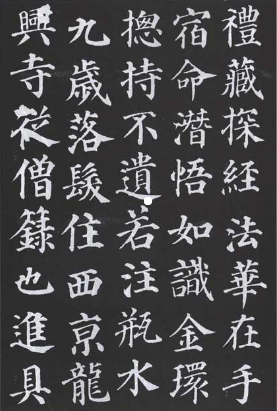 禮藏探經法華在手
宿命潛悟如識金環
揔持不遺若注瓶水
九歳落髮住西京龍
興寺從僧籙也進具